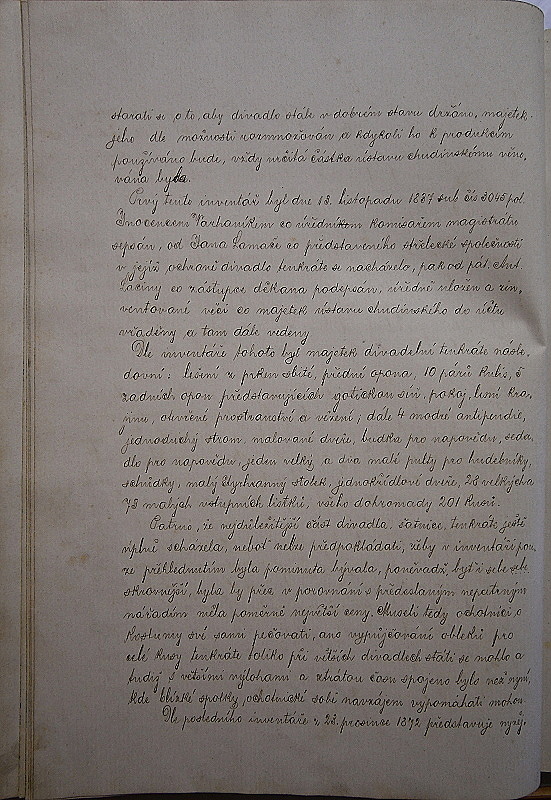 starati se o to, aby divadlo stále v dobrém stavu držáno, majetek
jeho dle možnosti rozmnožován a kdykoli ho k produkcím
používáno bude, vždy určitá částka ústavu chudinskému věno-
vána byla.
Prvý tento inventář byl dne 13. listopadu 1837 sub čís 3045 pol.
Inocencem Varhaníkem co úředním komisařem magistrátu
sepsán, od Jana Lamače co představeného střelecké společnosti
v jejíž ochraně divadlo tenkráte se nacházelo, pak od pát. Ant.
Laciny co zástupce děkana podepsán, úředně uložen a zin-
ventované věci co majetek ústavu chudinského do účtu
uvaděny a tam dále vedeny
Dle inventáře tohoto byl majetek divadelní tenkráte násle-
dovní: lešení z prken sbité, přední opona, 10 párů kulis, 5
zadních opon představujících gotickou síň, pokoj, lesní kra-
jinu, otevřené prostranství a vězení; dále 4 modré antipendie,
jednoduchý strom malované dveře, budka pro nápovědu, seda-
dlo pro nápovědu, jeden velký a dva malé pulty pro hudebníky,
schůdky, malý čtyrhranný stolek, jednokřídlové dveře, 25 velkých a
75 malých vstupních lístků, všeho dohromady 201 kusů.
Patrno, že nejdůležitější část divadla, šatnice, tenkrát ještě
úplně scházela, neboť nelze předpokládati, žeby v inventáři pou-
ze přehlednutím byla pominuta bývala, poněvadž, byť i sebe
skrovnější, byla by přec v porovnání s předeslaným nepatrným
nářadím měla poměrně největší ceny. Museli tedy ochotníci o
kostumy své sami pečovati, ano vypůjčování obleků pro
celé kusy tenkráte toliko při větších divadlech státi se mohlo a
tudíž s většími výlohami a ztrátou času spojeno bylo než nyní,
kde blízké spolky ochotnické sobě navzájem vypomáhati mohou
Dle posledního inventáře z 23. prosince 1872 představuje nyněj-